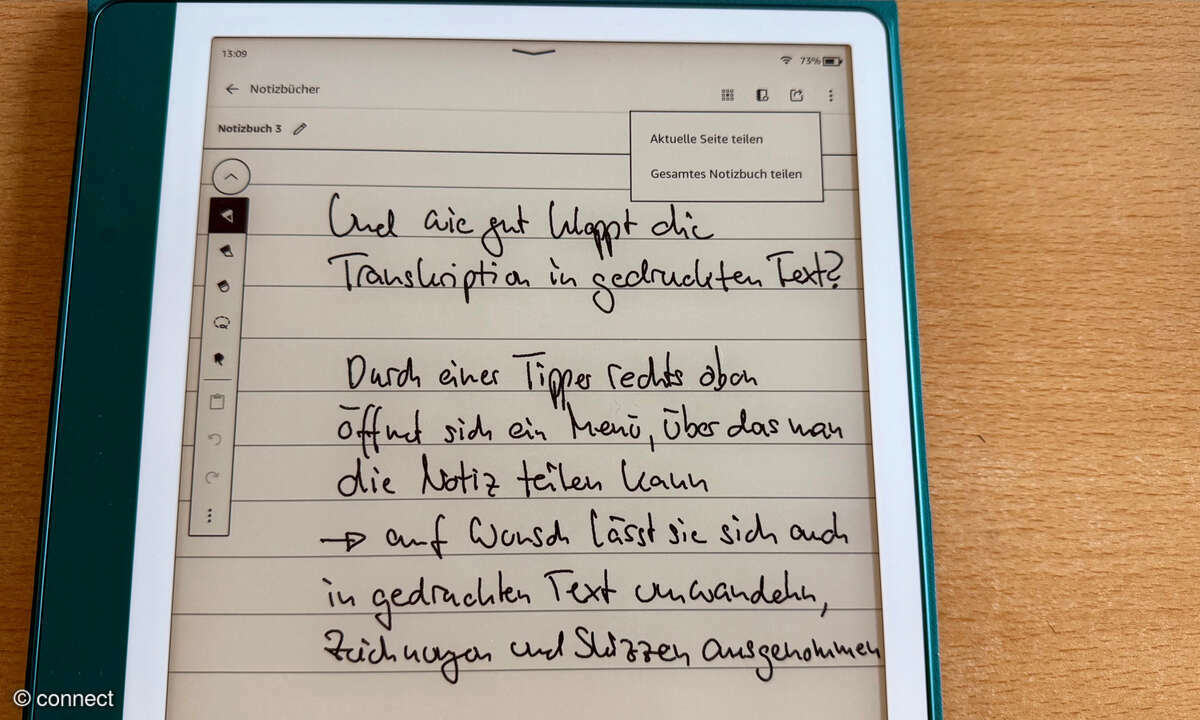 13:09
73%
Notizbücher
Notizbuch 3
Aktuelle Seite teilen
Gesamtes Notizbuch teilen
Und wie gut klappt die
Transkription in gedruckten Text?
Durch einen Tipper rechts oben
öffnet sich ein Menü, über das man
die Notiz teilen kann
→ auf Wunsch lässt sie sich auch
in gedruckten Text umwandeln,
Zeichnungen und Skizzen ausgenommen
© connect